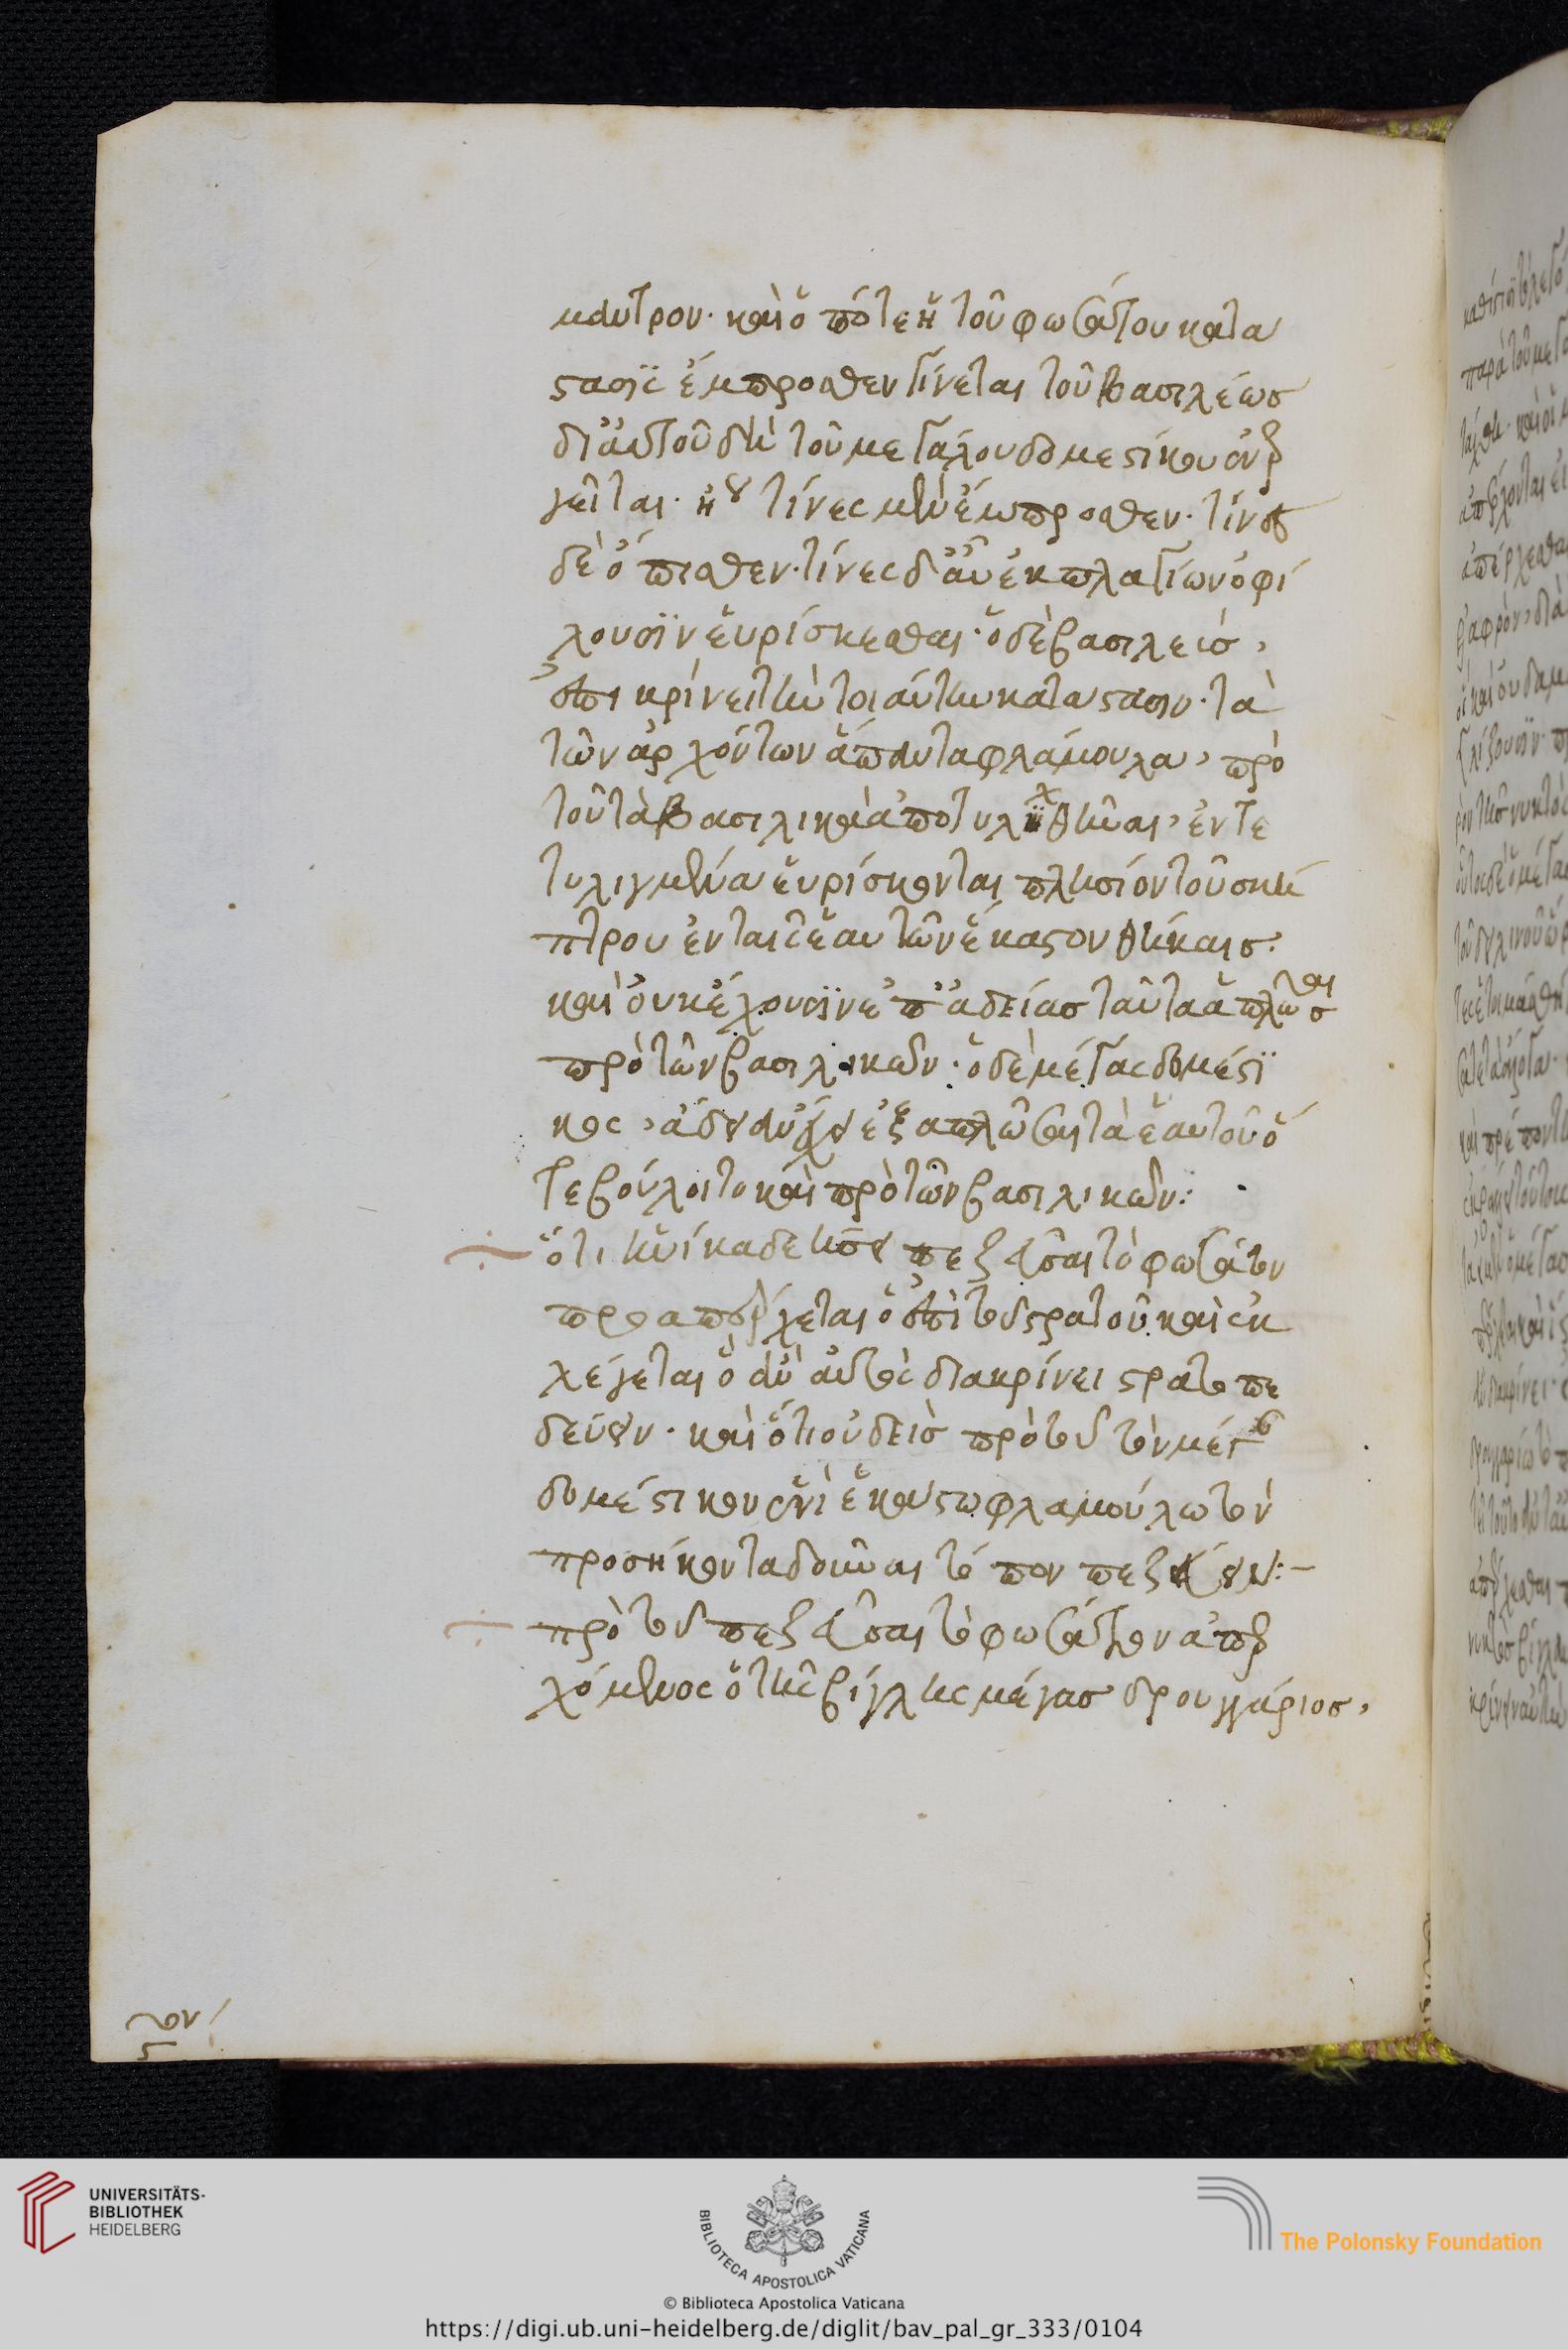 μάντρον· καὶ ὁπότε ἡ τοῦ φωσάτου κατά
στασϊς ἔμπροσθεν γίνεται τοῦ βασιλέως
δι᾽ αὐτοῦ δὴ τοῦ μεγάλου δομεστίκου ἐνερ
γεῖται· ἤγουν τίνες μὲν ἔμπροσθεν· τίνες
δὲ ὄπισθεν· τίνες δ᾽ αὖ ἐκ πλαγίων ὀφί
λουσϊν εὑρίσκεσθαι· ὁ δὲ βασιλεὺς,
ἐπικρίνει τὴν τοιαύτην κατάστασιν· τὰ
τῶν ἀρχόντων ἅπαντα φλάμουλα, πρὸ
τοῦ τὰ βασιλικὰ ἀποτυλϊχθῆναι, ἐντε
τυλιγμένα εὑρίσκονται πλησίον τοῦ σκή
πτρου ἐν ταῖς ἑαυτῶν ἕκαστον θήκαις·
καὶ οὐκ ἔχουσϊν ἐπ᾽ ἀδείας ταῦτα ἁπλῶσαι
πρὸ τῶν βασιλικῶν· ὁ δὲ μέγας δομέστϊ
κος, ἄδειαν ἔχει ἐξαπλῶσαι τὰ ἑαυτοῦ ὅ
τε βούλοιτο καὶ πρὸ τῶν βασιλικῶν:
ὅτι ἡνίκα δεήσει πεζεῦσαι τὸ φωσάτον
προαπέρχεται ὁ ἐπὶ τοῦ στρατοῦ καὶ ἐκ
λέγεται ὃ ἂν αὐτὸς διακρίνει στρατοπε
δεύειν· καὶ ὅτι οὐδεὶς πρὸ τοῦ τὸν μέγαν
δομέστικον ἑνὶ ἑκάστω φλαμούλω τὸν
προσήκοντα δοῦναι τόπον πεζεύει:-
πρὸ τοῦ πεζεῦσαι τὸ φωσάτον ἀπερ
χόμενος ὁ τῆς βίγλης μέγας δρουγγάριος,
UNIVERSITÄTS-
BIBLIOTHEK
HEIDELBERG
BIBLIOTECA APOSTOLICA VATICANA
The Polonsky Foundation
© Biblioteca Apostolica Vaticana
https://digi.ub.uni-heidelberg.de/diglit/bav_pal_gr_333/0104